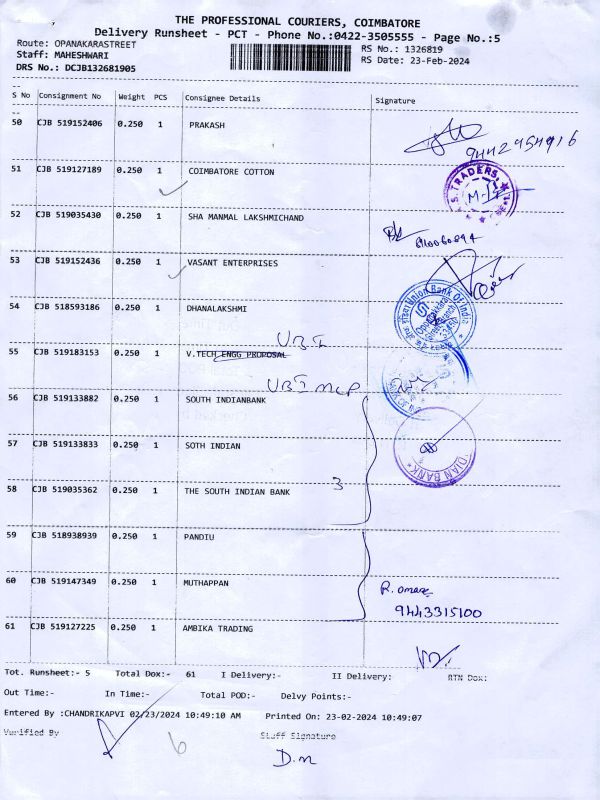 THE PROFESSIONAL COURIERS, COIMBATORE
Delivery Runsheet - PCT - Phone No.:0422-3505555 - Page No.:5
Route: OPANAKARASTREET RS No.: 1326819
Staff: MAHESHWARI RS Date: 23-Feb-2024
DRS No.: DCJB132681905
S No Consignment No Weight PCS Consignee Details Signature
50 CJB 519152406 0.250 1 PRAKASH
51 CJB 519127189 0.250 1 COIMBATORE COTTON
S. TRADERS,
52 CJB 519035430 0.250 1 SHA MANMAL LAKSHMICHAND
53 CJB 519152436 0.250 1 VASANT ENTERPRISES
Union Bank Of India
54 CJB 518593186 0.250 1 DHANALAKSHMI
UBI
55 CJB 519183153 0.250 1 V.TECH ENGG PROPOSAL
UBI MLP
56 CJB 519133882 0.250 1 SOUTH INDIANBANK
57 CJB 519133833 0.250 1 SOTH INDIAN
DIAN BANK
58 CJB 519035362 0.250 1 THE SOUTH INDIAN BANK 3
59 CJB 518938939 0.250 1 PANDIU
60 CJB 519147349 0.250 1 MUTHAPPAN
9443315100
61 CJB 519127225 0.250 1 AMBIKA TRADING
Tot. Runsheet:- 5 Total Dox:- 61 I Delivery:- II Delivery: RTN Dox:
Out Time:- In Time:- Total POD:- Delvy Points:-
Entered By :CHANDRIKAPVI 02/23/2024 10:49:10 AM Printed On: 23-02-2024 10:49:07
Verified By Staff Signature
6
D.m